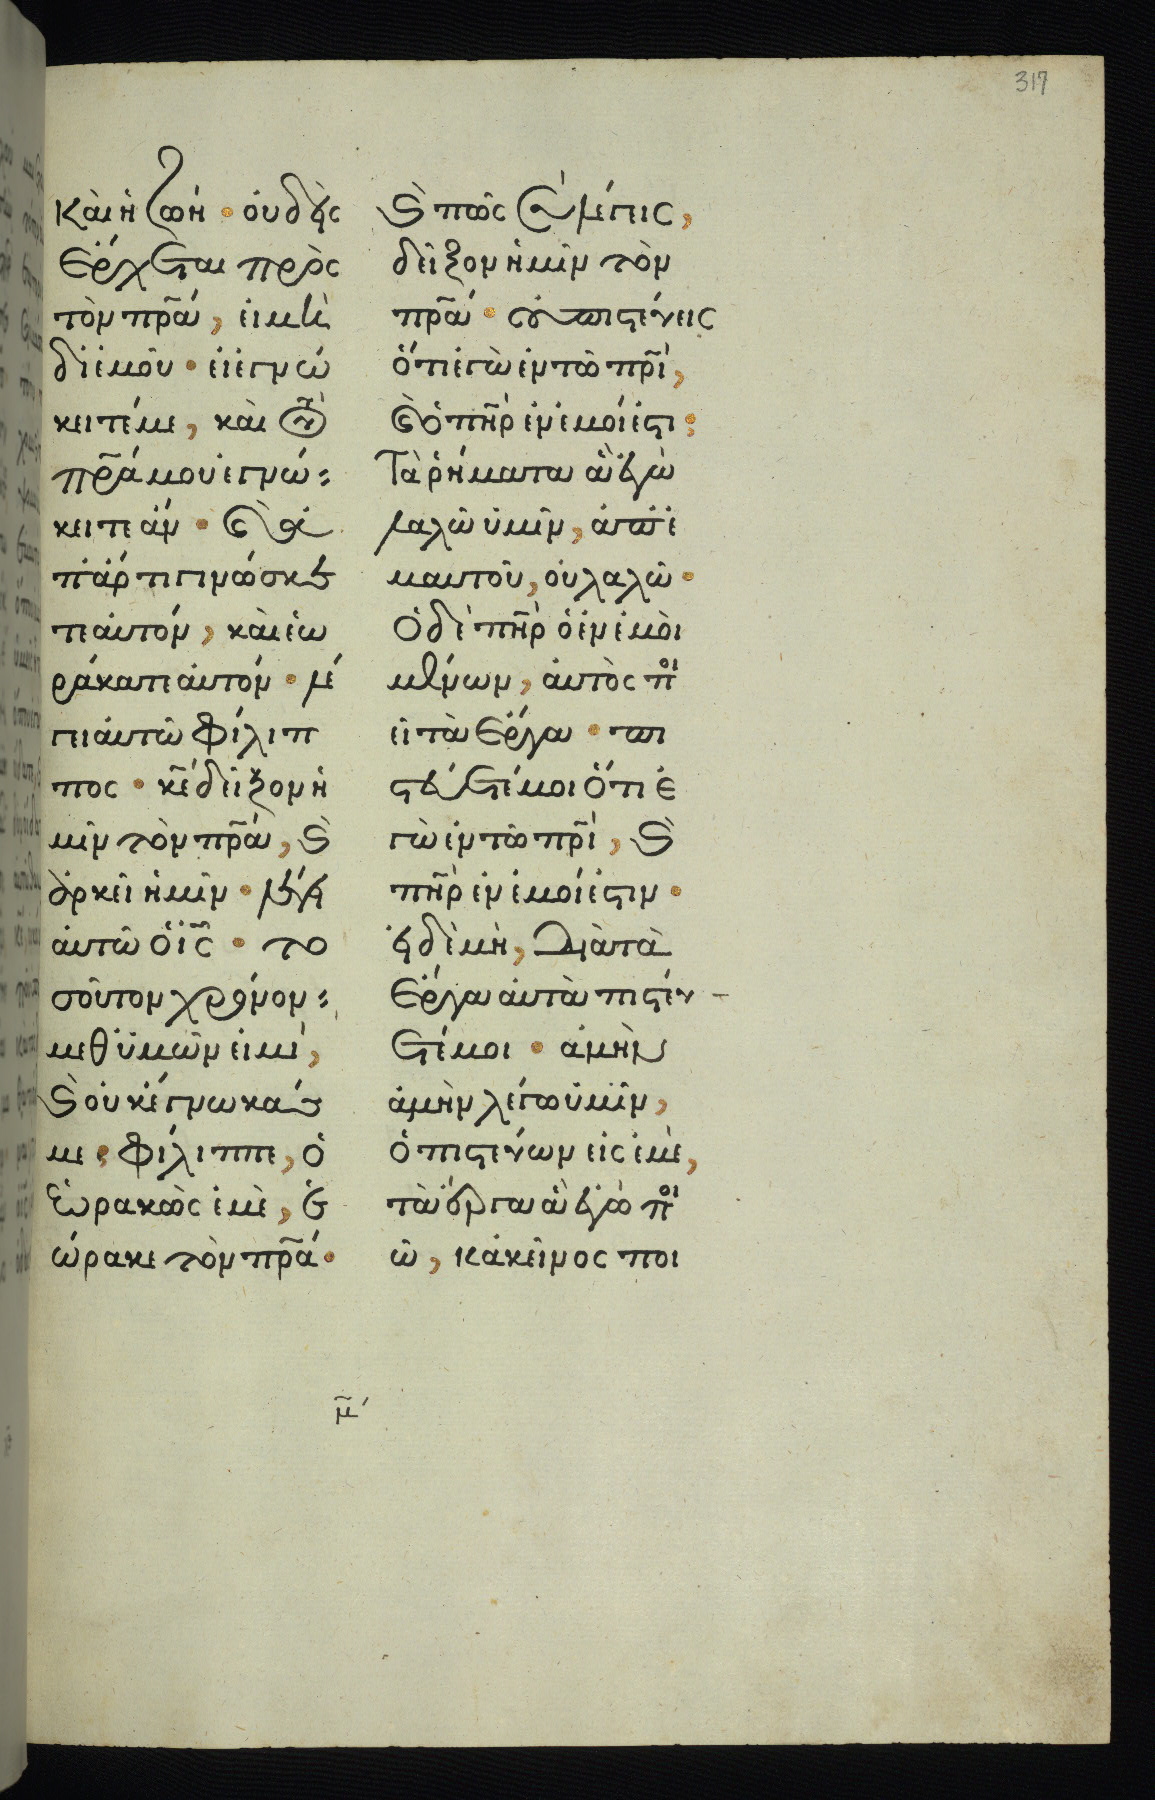 317
καὶ ἡ ζωή · οὐδεὶς
ἔρχεται πρὸς
τὸν πρ̅α, εἰ μὴ
δι ἐμοῦ · εἰ ἐγνώ
κειτέ με, καὶ τὸν
πρ̅α μου ἐγνώ
κειτε ἄν · καὶ ἀ
π ἄρτι γινώσκε
τε αὐτόν, καὶ ἑω
ράκατε αὐτόν · λέ
γει αὐτῶ Φίλιπ
πος · κ̅ε δεῖξον ἡ
μῖν τὸν πρ̅α, καὶ
ἀρκεῖ ἡμῖν · λέγει
αὐτῶ ὁ ι̅ς · το
σοῦτον χρόνον
μεθ ὑμῶν εἰμί,
καὶ οὐκ ἔγνωκάς
με · Φίλιππε, ὁ
ἑωρακὼς ἐμὲ, ἑ
ώρακε τὸν πρ̅α ·
καὶ πῶς σὺ λέγεις,
δεῖξον ἡμῖν τὸν
πρ̅α · οὐ πιστεύεις
ὅτι ἐγὼ ἐν τῶ πρ̅ι,
καὶ ὁ πη̅ρ ἐν ἐμοί ἐστι ·
Τὰ ῥήματα ἃ ἐγὼ
λαλῶ ὑμῖν, ἀπ ἐ
μαυτοῦ, οὐ λαλῶ ·
Ὁ δὲ πη̅ρ ὁ ἐν ἐμοὶ
μένων, αὐτὸς ποι
εῖ τὰ ἔργα · πι
στεύετέ μοι ὅτι ἐ
γὼ ἐν τῶ πρ̅ι, καὶ
πη̅ρ ἐν ἐμοί ἐστιν ·
εἰ δὲ μὴ, διὰ τὰ
ἔργα αὐτὰ πιστεύ
ετέ μοι · ἀμὴν
ἀμὴν λέγω ὑμῖν,
ὁ πιστεύων εἰς ἐμὲ,
τὰ ἔργα ἃ ἐγὼ ποι
ῶ, κἀκεῖνος ποι
μ̅ʹ